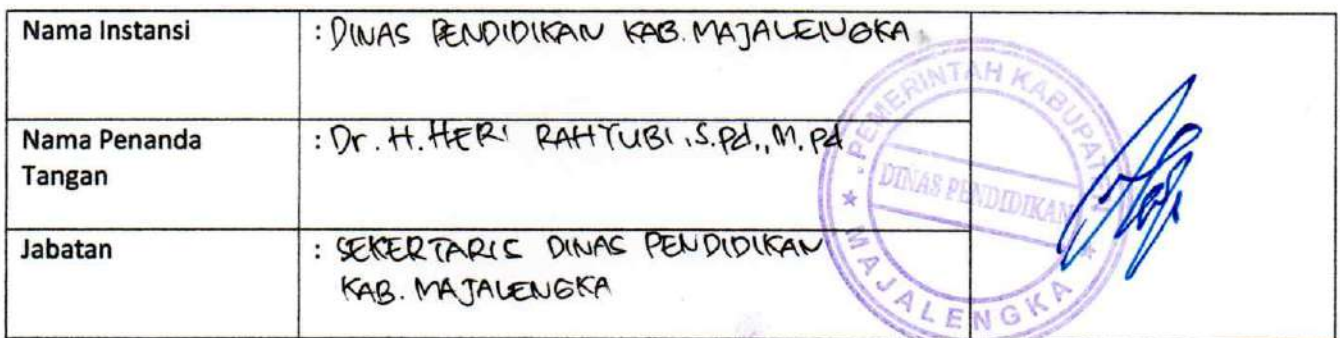 Nama Instansi : DINAS PENDIDIKAN KAB. MAJALENGKA
Nama Penanda : Dr. H. HERI RAHYUBI, S.Pd., M.Pd
Tangan
Jabatan : SEKERTARIS DINAS PENDIDIKAN
KAB. MAJALENGKA
PEMERINTAH KABUPATEN
DINAS PENDIDIKAN
MAJALENGKA